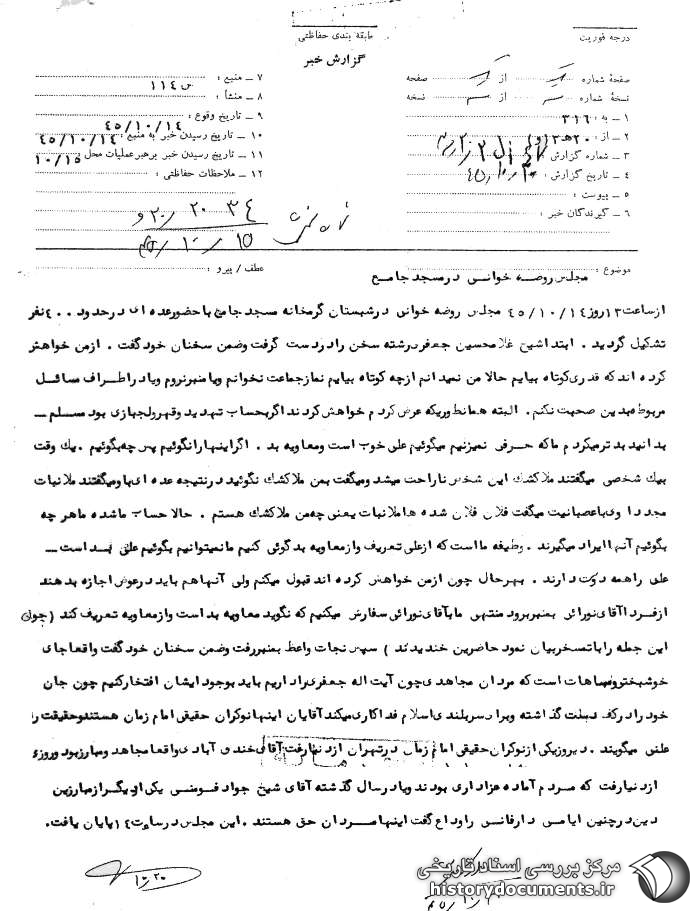 درجه فوریت
طبقه بندی حفاظتی
گزارش خبر
صفحهٔ شماره از صفحه
نسخهٔ شماره از نسخه
۱ ــ به : ۳۱۶
۲ ــ از : ۲۰ هـ ۳
۳ ــ شماره گزارش
۴ ــ تاریخ گزارش :
۵ ــ پیوست :
۶ ــ گیرندگان خبر :
۷ ــ منبع :
۸ ــ منشأ : س ۱۱۴
۹ ــ تاریخ وقوع : ۴۵/۱۰/۱۴
۱۰ ــ تاریخ رسیدن خبر به منبع : ۴۵/۱۰/۱۴
۱۱ ــ تاریخ رسیدن خبر برهبر عملیات محل ۱۰/۱۵
۱۲ ــ ملاحظات حفاظتی :
موضوع : مجلس روضه خوانی در مسجد جامع
عطف / پیرو :
از ساعت ۱۳ روز ۴۵/۱۰/۱۴ مجلس روضه خوانی در شبستان گرمخانه مسجد جامع با حضور عده ای در حدود ۴۰۰ نفر
تشکیل گردید . ابتدا شیخ غلامحسین جعفری رشته سخن را در دست گرفت و ضمن سخنان خود گفت . از من خواهش
کرده اند که قدری کوتاه بیایم حالا من نمیدانم از چه کوتاه بیایم نماز جماعت نخوانم و یا منبر نروم و یا در اطراف مسائل
مربوط بدین صحبت نکنم . البته همانطوریکه عرض کردم خواهش کردند اگر بحساب تهدید و قهر و لجبازی بود مسلم ــ
بدانید بدتر میکردم ما که حرفی نمیزنیم میگوئیم علی خوب است و معاویه بد . اگر اینها را نگوئیم پس چه بگوئیم . یک وقت
بیک شخصی میگفتند ملاکشک این شخص ناراحت میشد و میگفت بمن ملاکشک نگوئید در نتیجه عده ای باو میگفتند ملانبات
مجددا وی با عصبانیت میگفت فلان فلان شده ها ملانبات یعنی چه من ملاکشک هستم . حالا حساب ما شده ما هر چه
بگوئیم آنها ایراد میگیرند . وظیفه ما است که از علی تعریف و از معاویه بدگوئی کنیم ما نمیتوانیم بگوئیم علی بد است ــ
علی را همه دوست دارند . بهر حال چون از من خواهش کرده اند قبول میکنم ولی آنها هم باید در عوض اجازه بدهند
از فردا آقای نورائی بمنبر برود منتهی ما بآقای نورائی سفارش میکنیم که نگوید معاویه بد است و از معاویه تعریف کند ( چون
این جمله را با تمسخر بیان نمود حاضرین خندیدند ) سپس نجات واعظ بمنبر رفت و ضمن سخنان خود گفت واقعا جای
خوشبختی و مباهات است که مردان مجاهدی چون آیت اله جعفری را داریم باید بوجود ایشان افتخار کنیم چون جان
خود را در کف دست گذاشته و برای سربلندی اسلام فداکاری میکند آقایان اینها نوکران حقیقی امام زمان هستند و حقیقت را
علنی میگویند . دیروز یکی از نوکران حقیقی امام زمان در تهران از دنیا رفت آقای خندق آبادی واقعا مجاهد و مبارز بود و روزی
از دنیا رفت که مردم آماده عزاداری بودند و یا در سال گذشته آقای شیخ جواد فومنی یکی از دیگر از مبارزین
دین در چنین ایامی دار فانی را وداع گفت اینها مردان حق هستند . این مجلس در ساعت ۱۴ پایان یافت .
مرکز بررسی اسناد تاریخی
historydocuments.ir